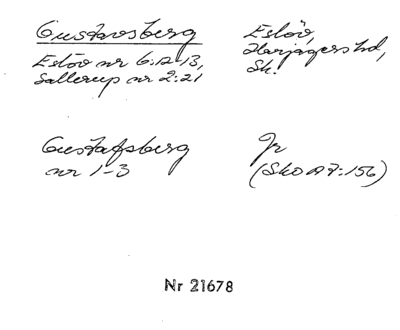 Gustavsberg
Eslöv nr 6:12-13,
Sallerup nr 2:21
Eslöv,
Harjagers hd,
Sk.
Gustafsberg
nr 1-3
Jr
(SkO A7:156)
Nr 21678